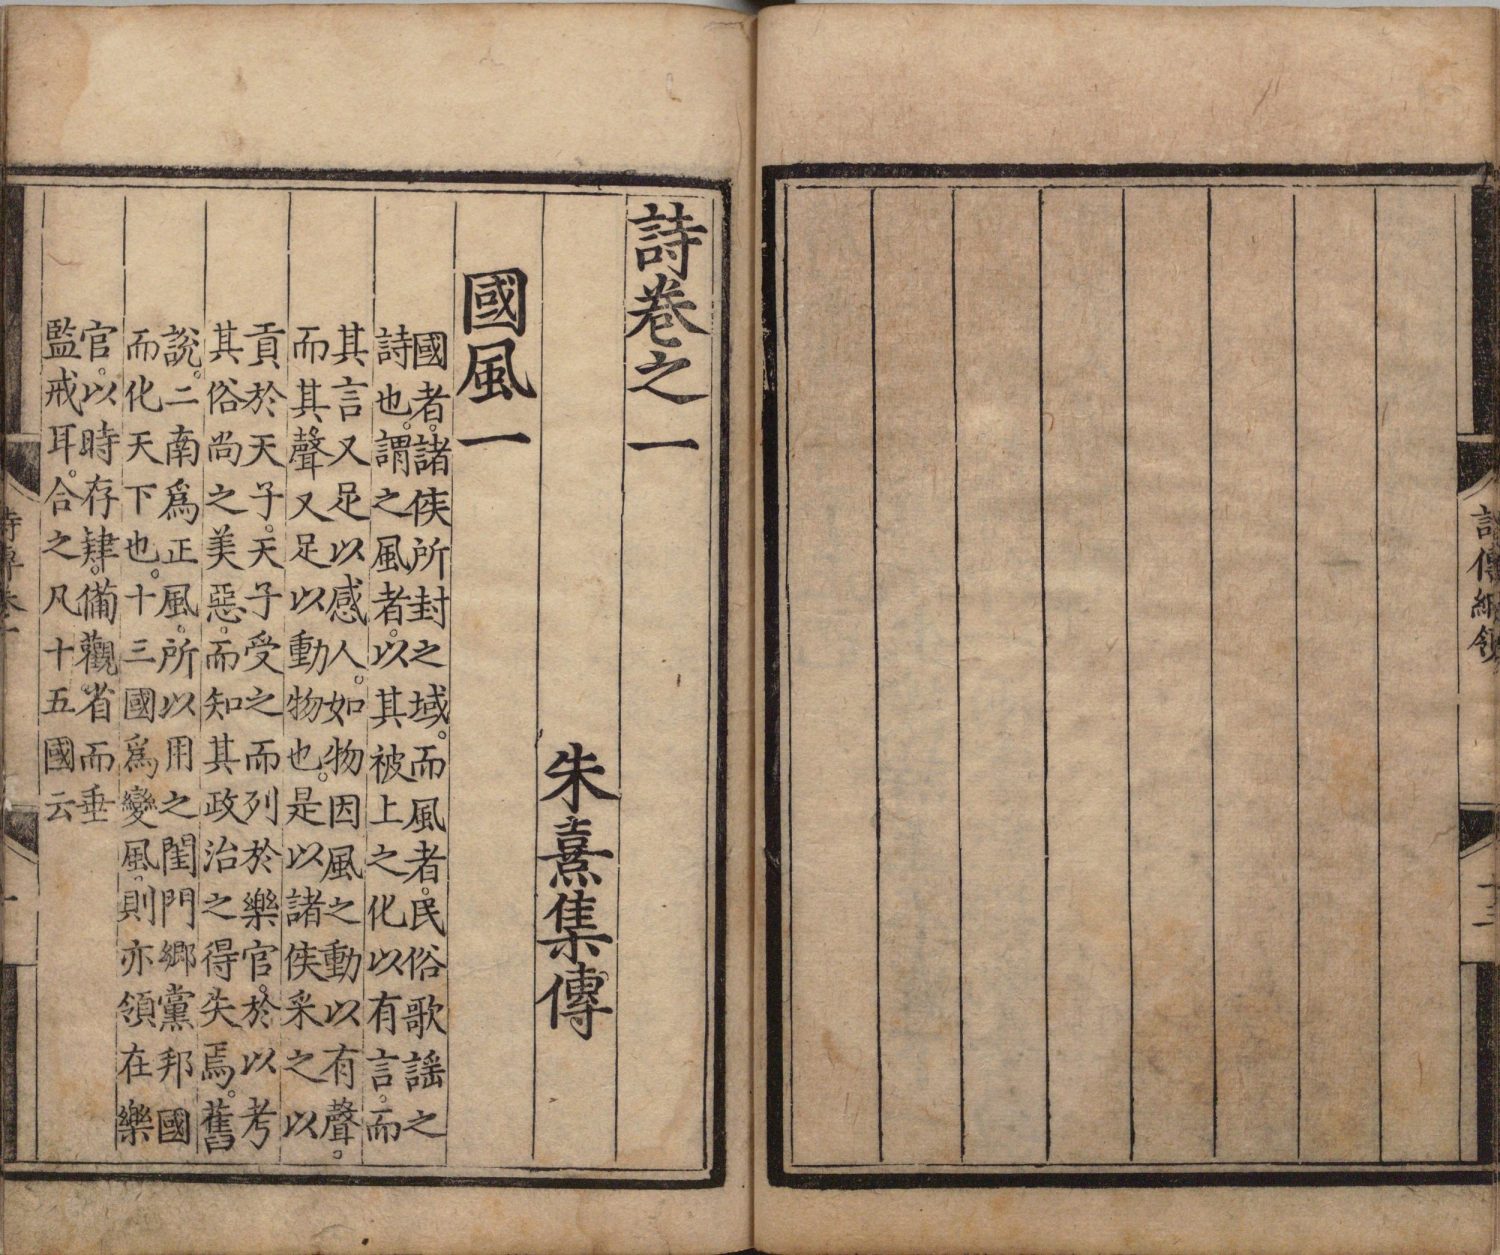 詩傳綱領
十三
詩卷之一
朱熹集傳
國風一
國者。諸侯所封之域。而風者。民俗歌謠之
詩也。謂之風者。以其被上之化以有言。而
其言又足以感人。如物因風之動以有聲。
而其聲又足以動物也。是以諸侯采之以
貢於天子。天子受之而列於樂官。於以考
其俗尚之美惡。而知其政治之得失焉。舊
說。二南爲正風。所以用之閨門鄉黨邦國
而化天下也。十三國爲變風。則亦領在樂
官。以時存肄。備觀省而垂
監戒耳。合之凡十五國云
詩傳卷一
一